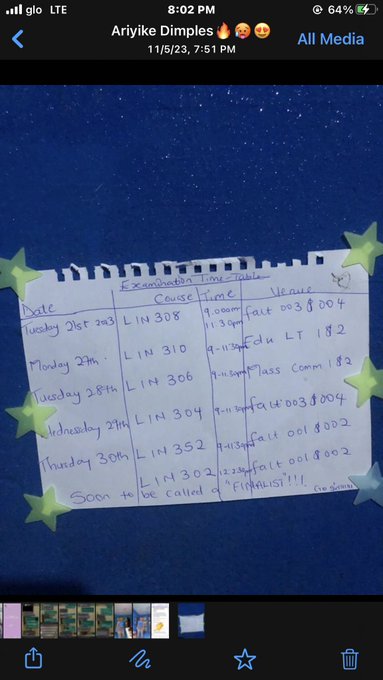 glo LTE 8:02 PM 64%
Ariyike Dimples🔥🥵😍
11/5/23, 7:51 PM
All Media
Examination Time-Table
Date Course Time Venue
Tuesday 21st 2023 LIN 308 9.00am 11:30pm falt 003 $ 004
Monday 27th. LIN 310 9-11:30pm Edu LT 1$2
Tuesday 28th LIN 306 9-11:30pm Mass Comm 1$2
Wednesday 29th LIN 304 9-11:30pm falt 003 $ 004
Thursday 30th LIN 352 9-11:30pm falt 001 $ 002
LIN 302 falt 001 $ 002
Soon to be called a "FINALIST"!!!